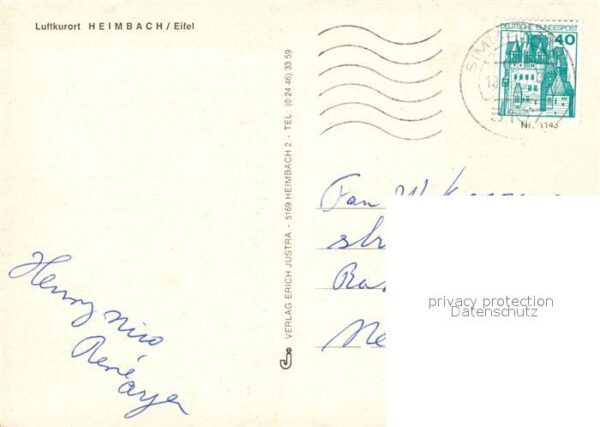 Luftkurort HEIMBACH / Eifel
DEUTSCHE BUNDESPOST
40
SIM
Nr. 1143
VERLAG ERICH JUSTRA - 5169 HEIMBACH 2 - TEL. (0 24 46) 33 59
Fam
str
Ne
privacy protection
Datenschutz
Henny Nico
René